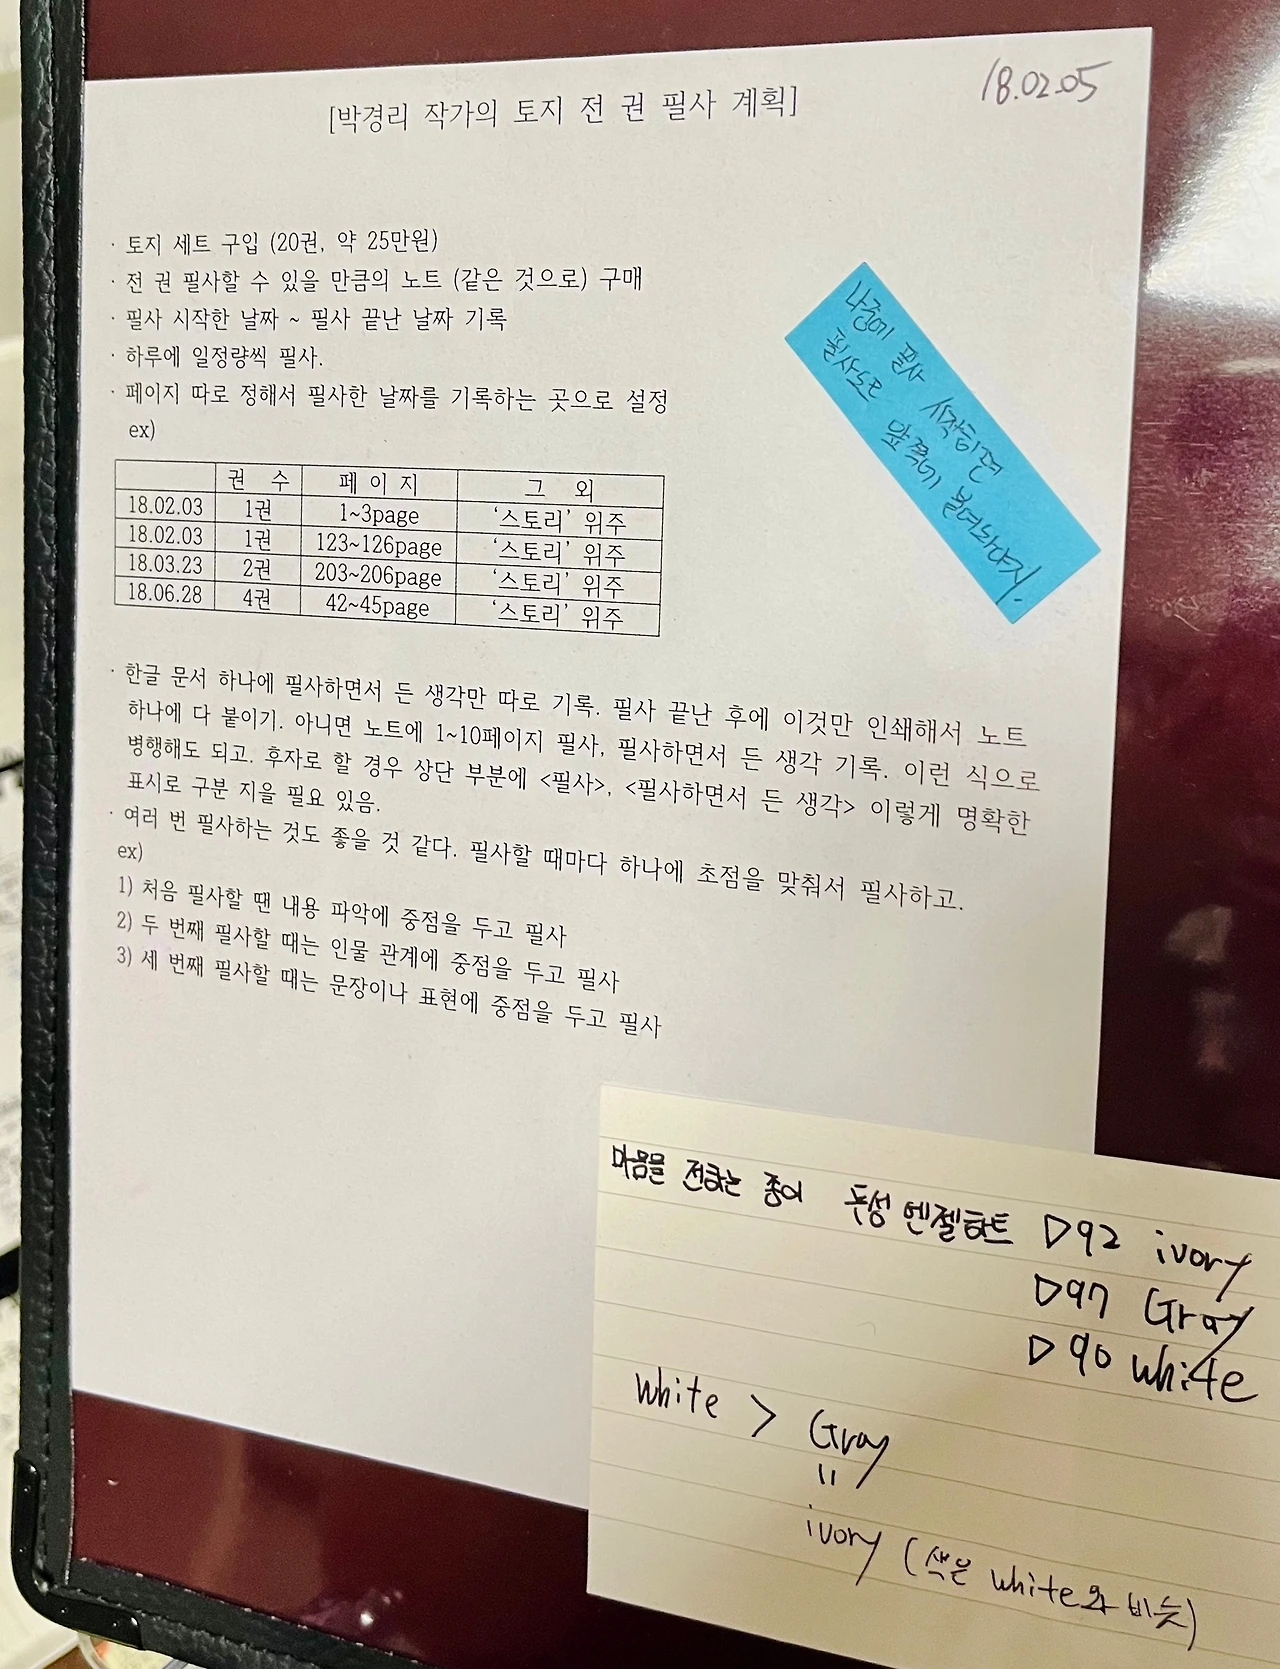 18.02.05
[박경리 작가의 토지 전 권 필사 계획]
· 토지 세트 구입 (20권, 약 25만원)
· 전 권 필사할 수 있을 만큼의 노트 (같은 것으로) 구매
· 필사 시작한 날짜 ~ 필사 끝난 날짜 기록
· 하루에 일정량씩 필사.
· 페이지 따로 정해서 필사한 날짜를 기록하는 곳으로 설정
ex)
권 수 페 이 지 그 외
18.02.03 1권 1~3page ‘스토리’ 위주
18.02.03 1권 123~126page ‘스토리’ 위주
18.03.23 2권 203~206page ‘스토리’ 위주
18.06.28 4권 42~45page ‘스토리’ 위주
나중에 필사 시작하면
필사노트 앞쪽에 붙여놔야지.
· 한글 문서 하나에 필사하면서 든 생각만 따로 기록. 필사 끝난 후에 이것만 인쇄해서 노트
하나에 다 붙이기. 아니면 노트에 1~10페이지 필사, 필사하면서 든 생각 기록. 이런 식으로
병행해도 되고. 후자로 할 경우 상단 부분에 <필사>, <필사하면서 든 생각> 이렇게 명확한
표시로 구분 지을 필요 있음.
· 여러 번 필사하는 것도 좋을 것 같다. 필사할 때마다 하나에 초점을 맞춰서 필사하고.
ex)
1) 처음 필사할 땐 내용 파악에 중점을 두고 필사
2) 두 번째 필사할 때는 인물 관계에 중점을 두고 필사
3) 세 번째 필사할 때는 문장이나 표현에 중점을 두고 필사
마음을 전하는 종이 두성 엔젤하트 D92 ivory
D97 Gray
D90 white
white > Gray
=
ivory (색은 white와 비슷)